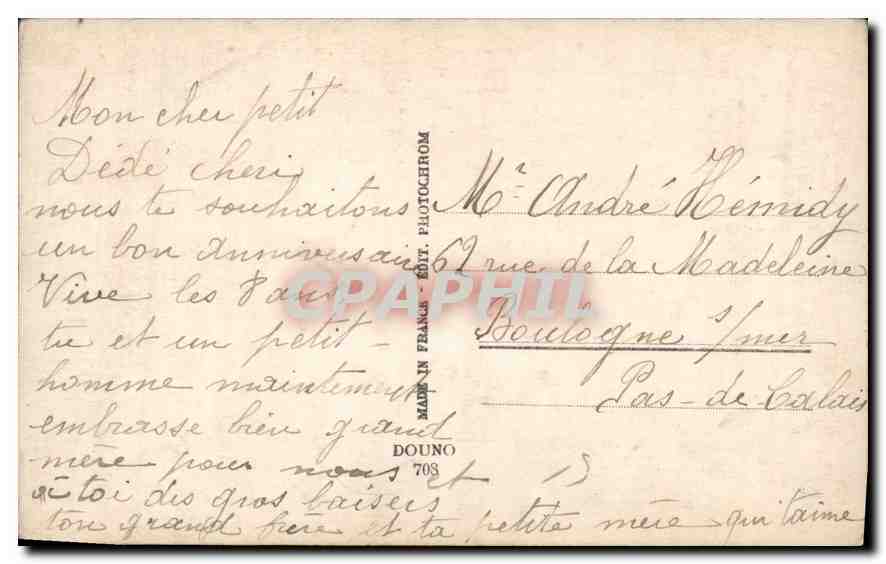 Mon cher petit
Dédé cheri
nous te souhaitons
un bon anniversaire
Vive les 8 ans
tu et un petit
homme maintement
embrasse bien grand
mère pour nous et
à toi des gros baisers
ton grand frère et ta petite mère qui t'aime
MADE IN FRANCE - EDIT. PHOTOCHROM
DOUNO
708
Mr André Hémidy
62 rue de la Madeleine
Boulogne s/mer
Pas-de Calais
CPAPHIL